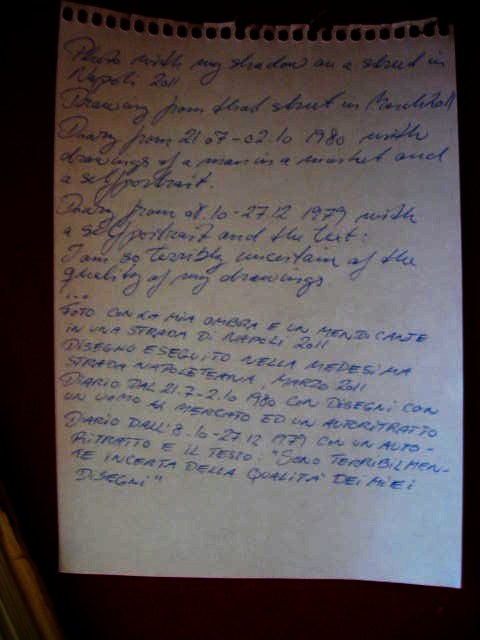 Photo with my shadow on a street in
Napoli 2011
Drawing from that street in March 2011
Diary from 21.07-02.10 1980 with
drawings of a man in a market and
a selfportrait.
Diary from 08.10-27.12 1979 with
a selfportrait and the text:
I am so terribly uncertain of the
quality of my drawings
...
FOTO CON LA MIA OMBRA E UN MENDICANTE
IN UNA STRADA DI NAPOLI 2011
DISEGNO ESEGUITO NELLA MEDESIMA
STRADA NAPOLETEANA, MARZO 2011
DIARIO DAL 21.7-2.10 1980 CON DISEGNI CON
UN UOMO AL MERCATO ED UN AUTORITRATTO
DIARIO DALL'8.10-27.12 1979 CON UN AUTO-
RITRATTO E IL TESTO: "SONO TERRIBILMEN-
TE INCERTA DELLA QUALITA' DEI MIEI
DISEGNI"